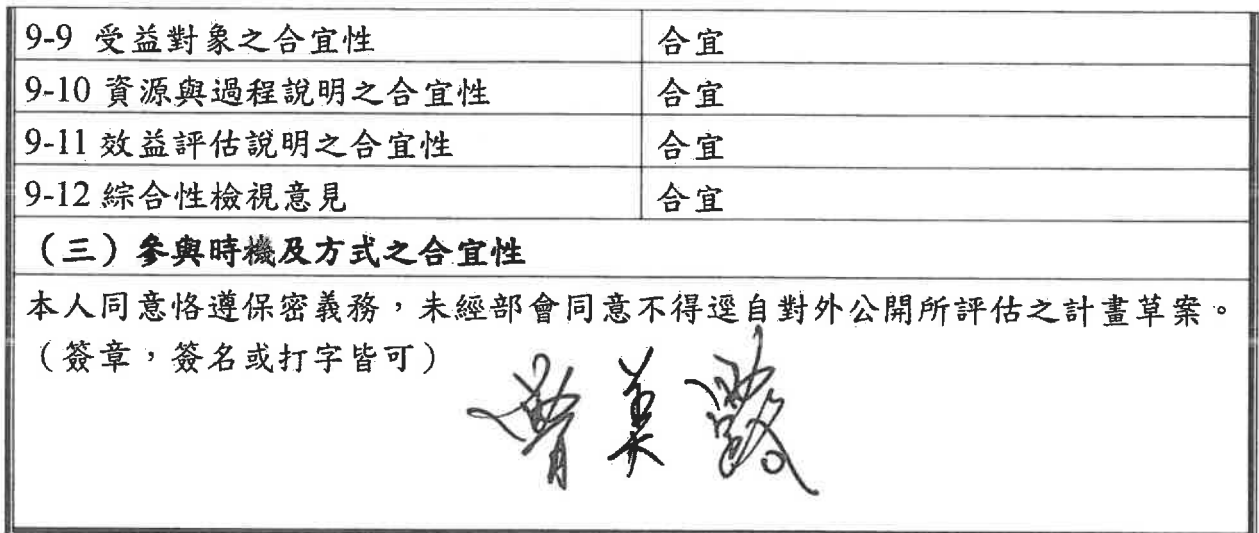 9-9 受益對象之合宜性 合宜
9-10 資源與過程說明之合宜性 合宜
9-11 效益評估說明之合宜性 合宜
9-12 綜合性檢視意見 合宜
（三）參與時機及方式之合宜性
本人同意恪遵保密義務，未經部會同意不得逕自對外公開所評估之計畫草案。
（簽章，簽名或打字皆可）